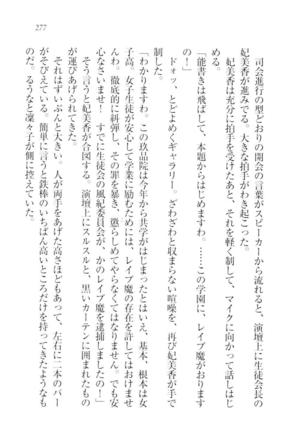 277
　司会進行の型どおりの開会の言葉がスピーカーから流れると、演壇上に生徒会長の
妃美香が進みでる。大きな拍手がわき起こった。
　妃美香は充分に拍手を受けたあと、それを軽く制して、マイクに向かって話しはじ
める。
「能書きは飛ばして、本題からはじめますわ。……この学園に、レイプ魔がおります
の！」
　ドォッ、とどよめくギャラリー。ざわざわとおさまらない喧噪を、再び妃美香が手で
制した。
「わかりますわ。この玖品院は今年から共学がはじまったとはいえ、基本、根本は女
子高。女子生徒が安心して学業に励むためには、レイプ魔の存在を許してはおけませ
んわ。徹底的に糾弾し、その罪を暴き、懲らしめてやらなくてはなりません。でも安
心なさいませ！　すでに生徒会の風紀委員が、かのレイプ魔を逮捕しましたの！」
　そう言うと妃美香が合図する。演壇上にスルスルと、黒いカーテンに囲まれたもの
が運びあげられてきた。
　それはずいぶんと大きい。人が両手をあげた高さほどもあって、左右に二本のバー
がそびえている。簡単に言うと鉄棒のいちばん高いところだけを持ってきたようなも
のだ。るうなと凜々子が側に控えていた。